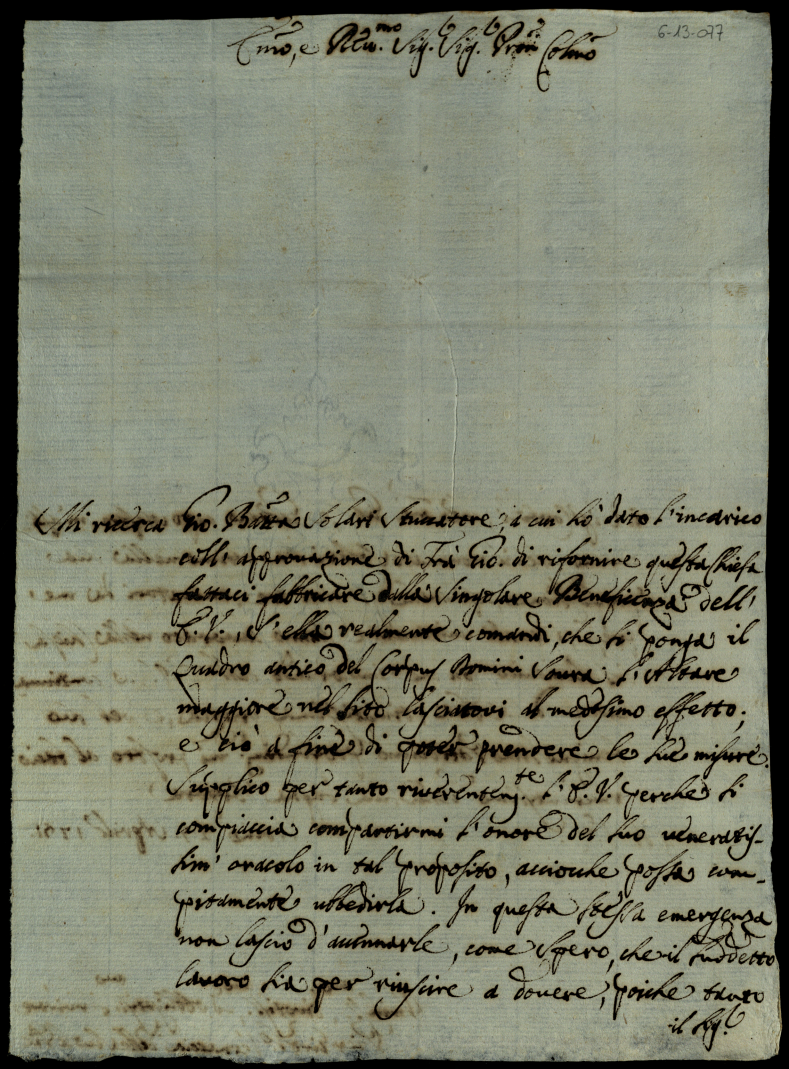 6-13-077
Em̃o, e Reu.mo Sig.r Sig.r Prõn Colmõ
Mi ricerca Gio. Batta Solari Stuccatore, a cui hò dato l'incarico
coll' approvazione di Frà Gio. di rifornire questa Chiesa
fattaci fabbricare dalla Singolare Beneficenza dell'
E. V., s'ella realmente comandi, che si ponga il
Quadro antico del Corpus Domini Sovra l'Altare
maggiore nel sito lasciatovi al medesimo effetto;
e ciò à fine di poter prendere le sue misure.
Supplico per tanto riverentem.te l'E. V. perche si
compiaccia compartirmi l'onore del suo veneratis-
sim' oracolo in tal proposito, accioche possa com-
pitamente ubbedirla. In questa stessa emergenza
non lascio d'accennarle, come spero, che il suddetto
lavoro sia per riuscire a dovere, poiche tanto
il Sig.r